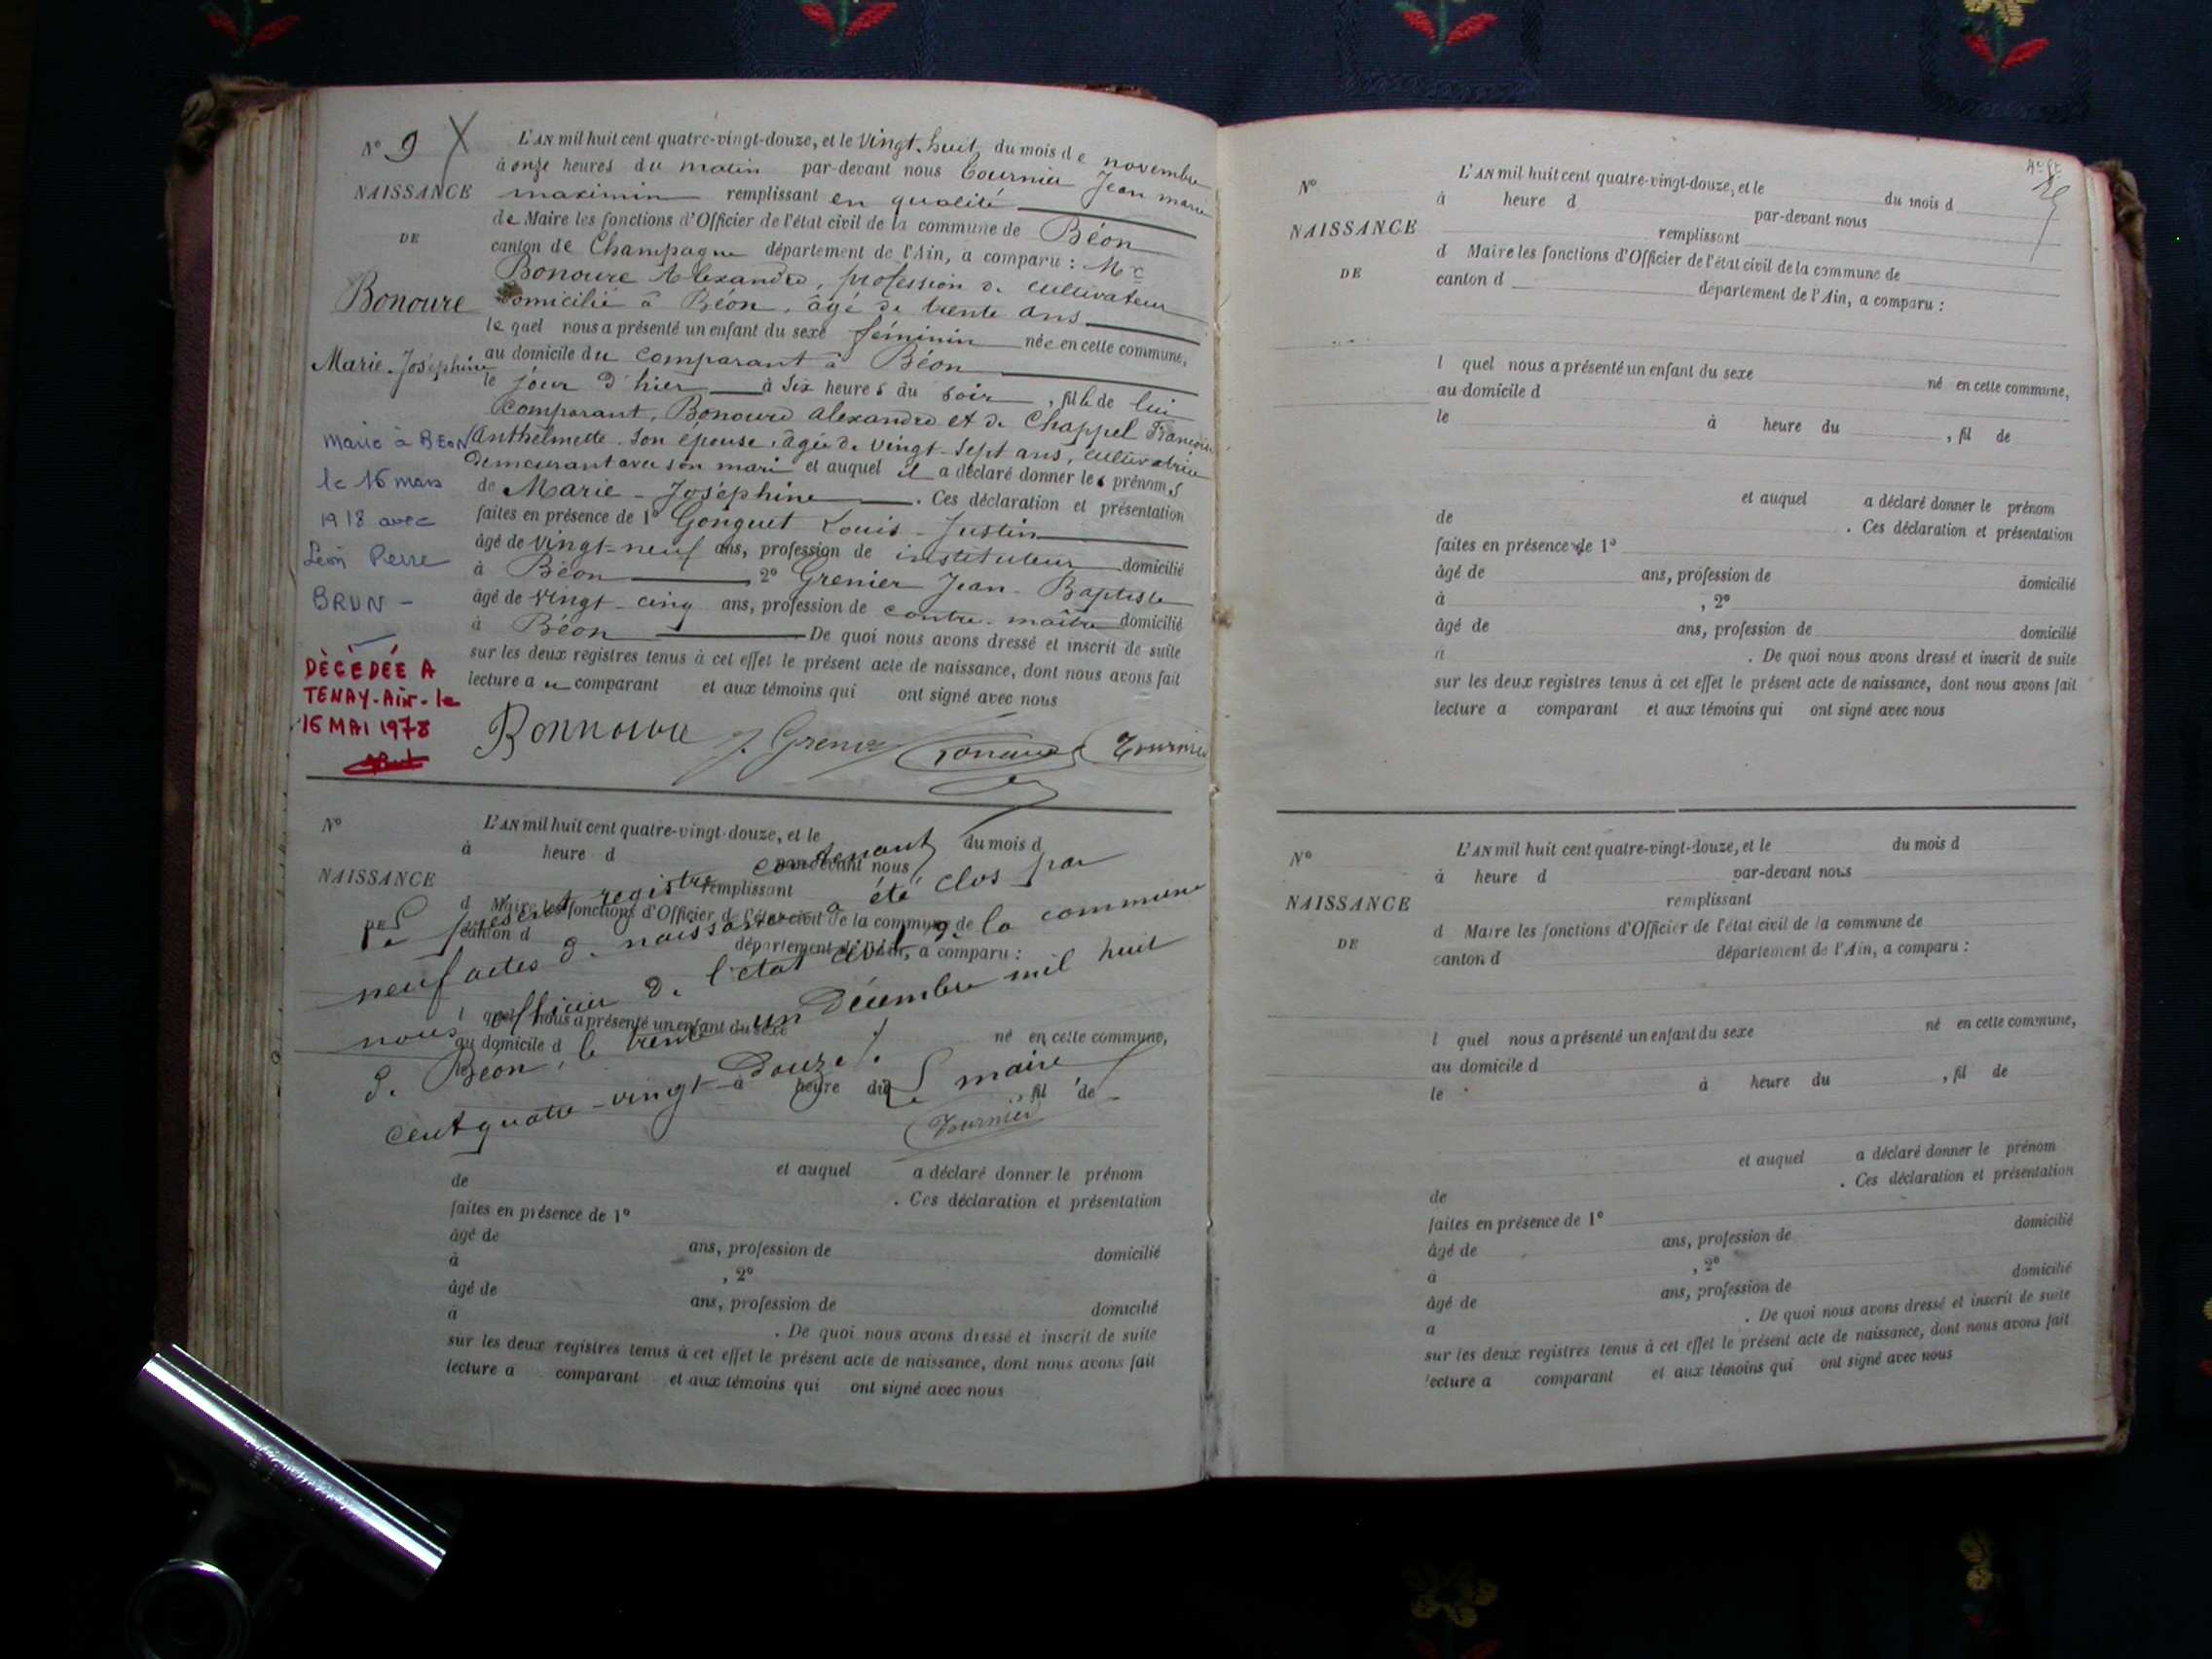 N° 9 X
NAISSANCE
DE
Bonoure
Marie-Joséphine
Marié à BÉON
le 16 mars
1918 avec
Léon Pierre
BRUN -
DÉCÉDÉE A
TENAY-Ain-le
16 MAI 1978
L'AN mil huit cent quatre-vingt-douze, et le vingt-huit du mois de novembre
à onze heures du matin par-devant nous Tournier Jean marie
maximin remplissant en qualité
de Maire les fonctions d'Officier de l'état civil de la commune de Béon
canton de Champagne département de l'Ain, a comparu : Mr
Bonoure Alexandre, profession de cultivateur
domicilié à Béon, âgé de trente ans
lequel nous a présenté un enfant du sexe féminin née en cette commune,
au domicile du comparant à Béon
le jour d'hier à six heures du soir, fille de lui
comparant, Bonoure alexandre et de Chappel Françoise
Anthelmette son épouse, âgée de vingt-sept ans, cultivatrice
demeurant avec son mari et auquel il a déclaré donner les prénoms
de Marie-Joséphine. Ces déclaration et présentation
faites en présence de 1° Gonguet Louis-Justin
âgé de vingt-neuf ans, profession de instituteur domicilié
à Béon 2° Grenier Jean-Baptiste
âgé de vingt-cinq ans, profession de contre-maître domicilié
à Béon De quoi nous avons dressé et inscrit de suite
sur les deux registres tenus à cet effet le présent acte de naissance, dont nous avons fait
lecture au comparant et aux témoins qui ont signé avec nous
Bonnoure J. Grenier Tournier
N°
NAISSANCE
L'AN mil huit cent quatre-vingt-douze, et le du mois d
à heure d par-devant nous
remplissant
d Maire les fonctions d'Officier de l'état civil de la commune de
canton d département de l'Ain, a comparu :
l quel nous a présenté un enfant du sexe
au domicile d né en cette commune,
à heure du fil de
Le présent registre contenant
neuf actes de naissance a été clos par
nous officier de l'état civil de la commune
de Béon, le trente un Décembre mil huit
cent quatre-vingt-douze.
Le maire
Tournier
et auquel a déclaré donner le prénom
de . Ces déclaration et présentation
faites en présence de 1°
âgé de ans, profession de domicilié
à , 2°
âgé de ans, profession de domicilié
à . De quoi nous avons dressé et inscrit de suite
sur les deux registres tenus à cet effet le présent acte de naissance, dont nous avons fait
lecture a comparant et aux témoins qui ont signé avec nous
N°
NAISSANCE
DE
L'AN mil huit cent quatre-vingt-douze, et le du mois d
à heure d par-devant nous
remplissant
d Maire les fonctions d'Officier de l'état civil de la commune de
canton d département de l'Ain, a comparu :
l quel nous a présenté un enfant du sexe né en cette commune,
au domicile d
le à heure du , fil de
et auquel a déclaré donner le prénom
de . Ces déclaration et présentation
faites en présence de 1°
âgé de ans, profession de domicilié
à , 2°
âgé de ans, profession de domicilié
à . De quoi nous avons dressé et inscrit de suite
sur les deux registres tenus à cet effet le présent acte de naissance, dont nous avons fait
lecture a comparant et aux témoins qui ont signé avec nous
N°
NAISSANCE
DE
L'AN mil huit cent quatre-vingt-douze, et le du mois d
à heure d par-devant nous
remplissant
d Maire les fonctions d'Officier de l'état civil de la commune de
canton d département de l'Ain, a comparu :
l quel nous a présenté un enfant du sexe né en cette commune,
au domicile d
le à heure du , fil de
et auquel a déclaré donner le prénom
de . Ces déclaration et présentation
faites en présence de 1°
âgé de ans, profession de domicilié
à , 2°
âgé de ans, profession de domicilié
à . De quoi nous avons dressé et inscrit de suite
sur les deux registres tenus à cet effet le présent acte de naissance, dont nous avons fait
lecture a comparant et aux témoins qui ont signé avec nous